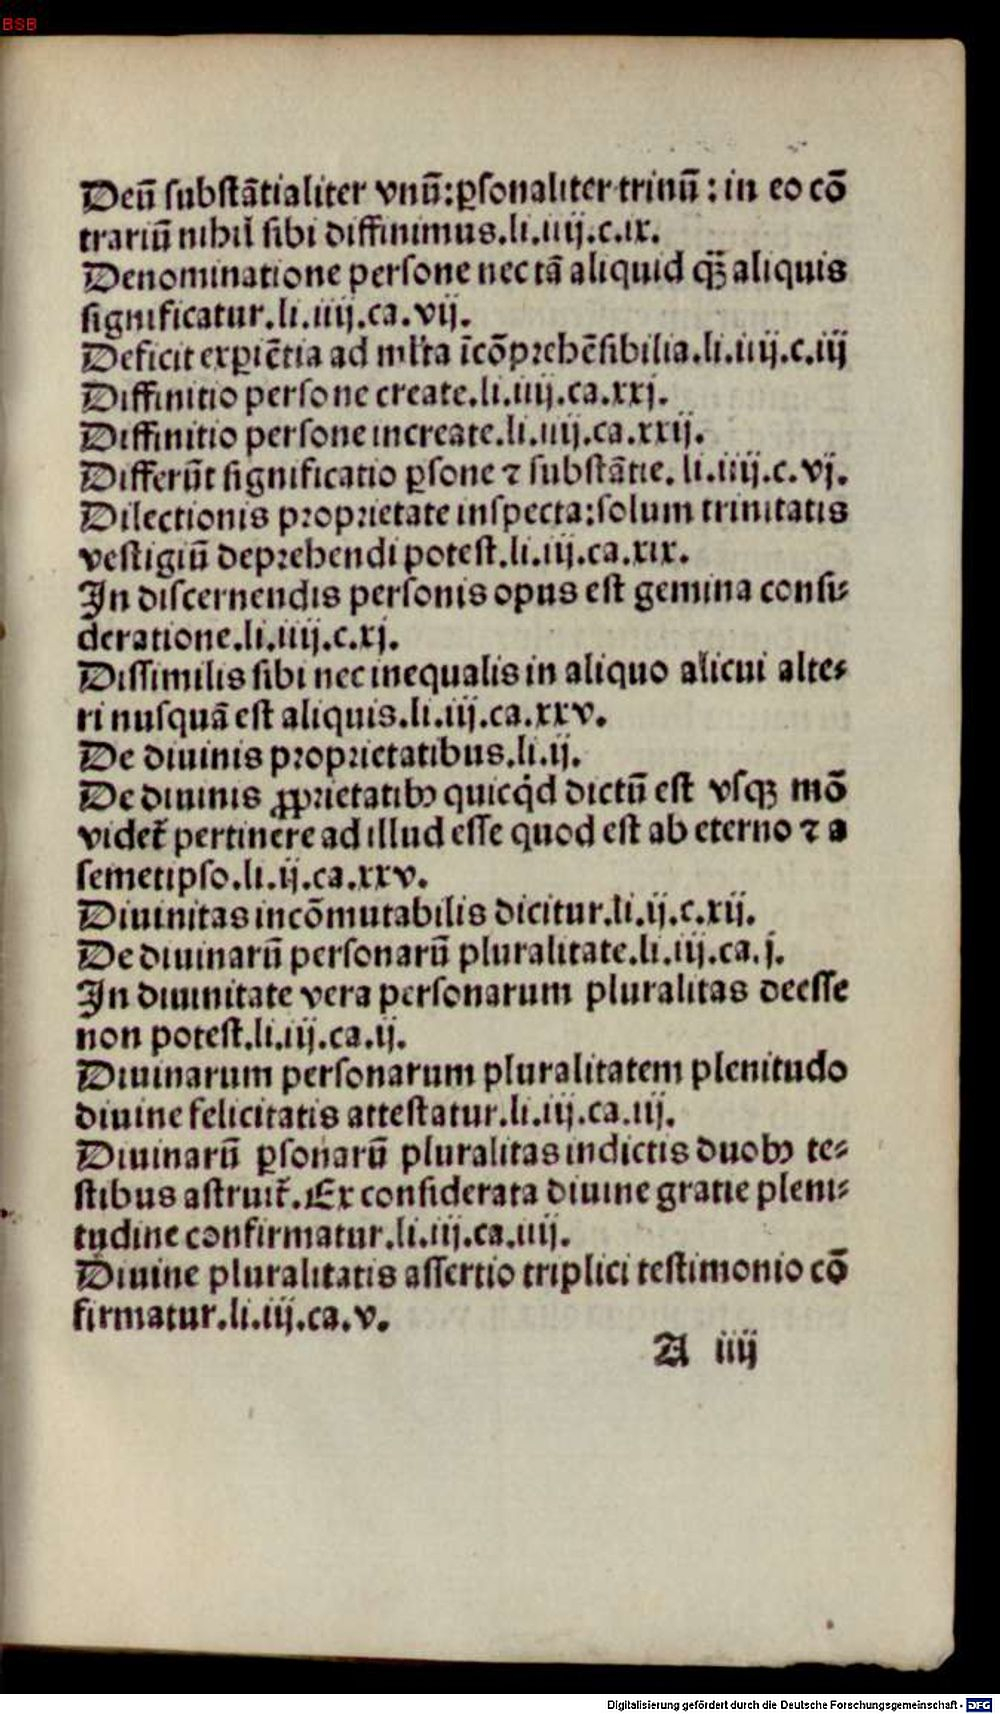 BSB
Deū ſubſtātialiter vnū:ꝑſonaliter trinū : in eo cō
trariū nihil ſibi diffinimus.li.iiij.c.ix.
Denominatione perſone nec tā aliquid qꝫ̄ aliquis
ſignificatur.li.iiij.ca.vij.
Deficit exꝑiētia ad ml'ta īcōprehēſibilia.li.iiij.c.iij
Diffinitio perſone create.li.iiij.ca.xxj.
Diffinitio perſone increate.li.iiij.ca.xxij.
Differūt ſignificatio ꝑſone ⁊ ſubſtātie. li.iiij.c.vj.
Dilectionis proprietate inſpecta:ſolum trinitatis
veſtigiū deprehendi poteſt.li.iij.ca.xix.
In diſcernendis perſonis opus eſt gemina conſi⸗
deratione.li.iiij.c.xj.
Diſſimilis ſibi nec inequalis in aliquo alicui alte⸗
ri nuſquā eſt aliquis.li.iij.ca.xxv.
De diuinis proprietatibus.li.ij.
De diuinis ꝓprietatibꝰ quicq̇d dictū eſt vſqꝫ mō
videt᷑ pertinere ad illud eſſe quod eſt ab eterno ⁊ a
ſemetipſo.li.ij.ca.xxv.
Diuinitas incōmutabilis dicitur.li.ij.c.xij.
De diuinarū perſonarū pluralitate.li.iij.ca.j.
In diuinitate vera perſonarum pluralitas deeſſe
non poteſt.li.iij.ca.ij.
Diuinarum perſonarum pluralitatem plenitudo
diuine felicitatis atteſtatur.li.iij.ca.iij.
Diuinarū ꝑſonarū pluralitas indictis duobꝰ te⸗
ſtibus aſtruit᷑.Ex conſiderata diuine gratie pleni⸗
tudine confirmatur.li.iij.ca.iiij.
Diuine pluralitatis aſſertio triplici teſtimonio cō
firmatur.li.iij.ca.v.
A iiij
Digitalisierung gefördert durch die Deutsche Forschungsgemeinschaft - DFG